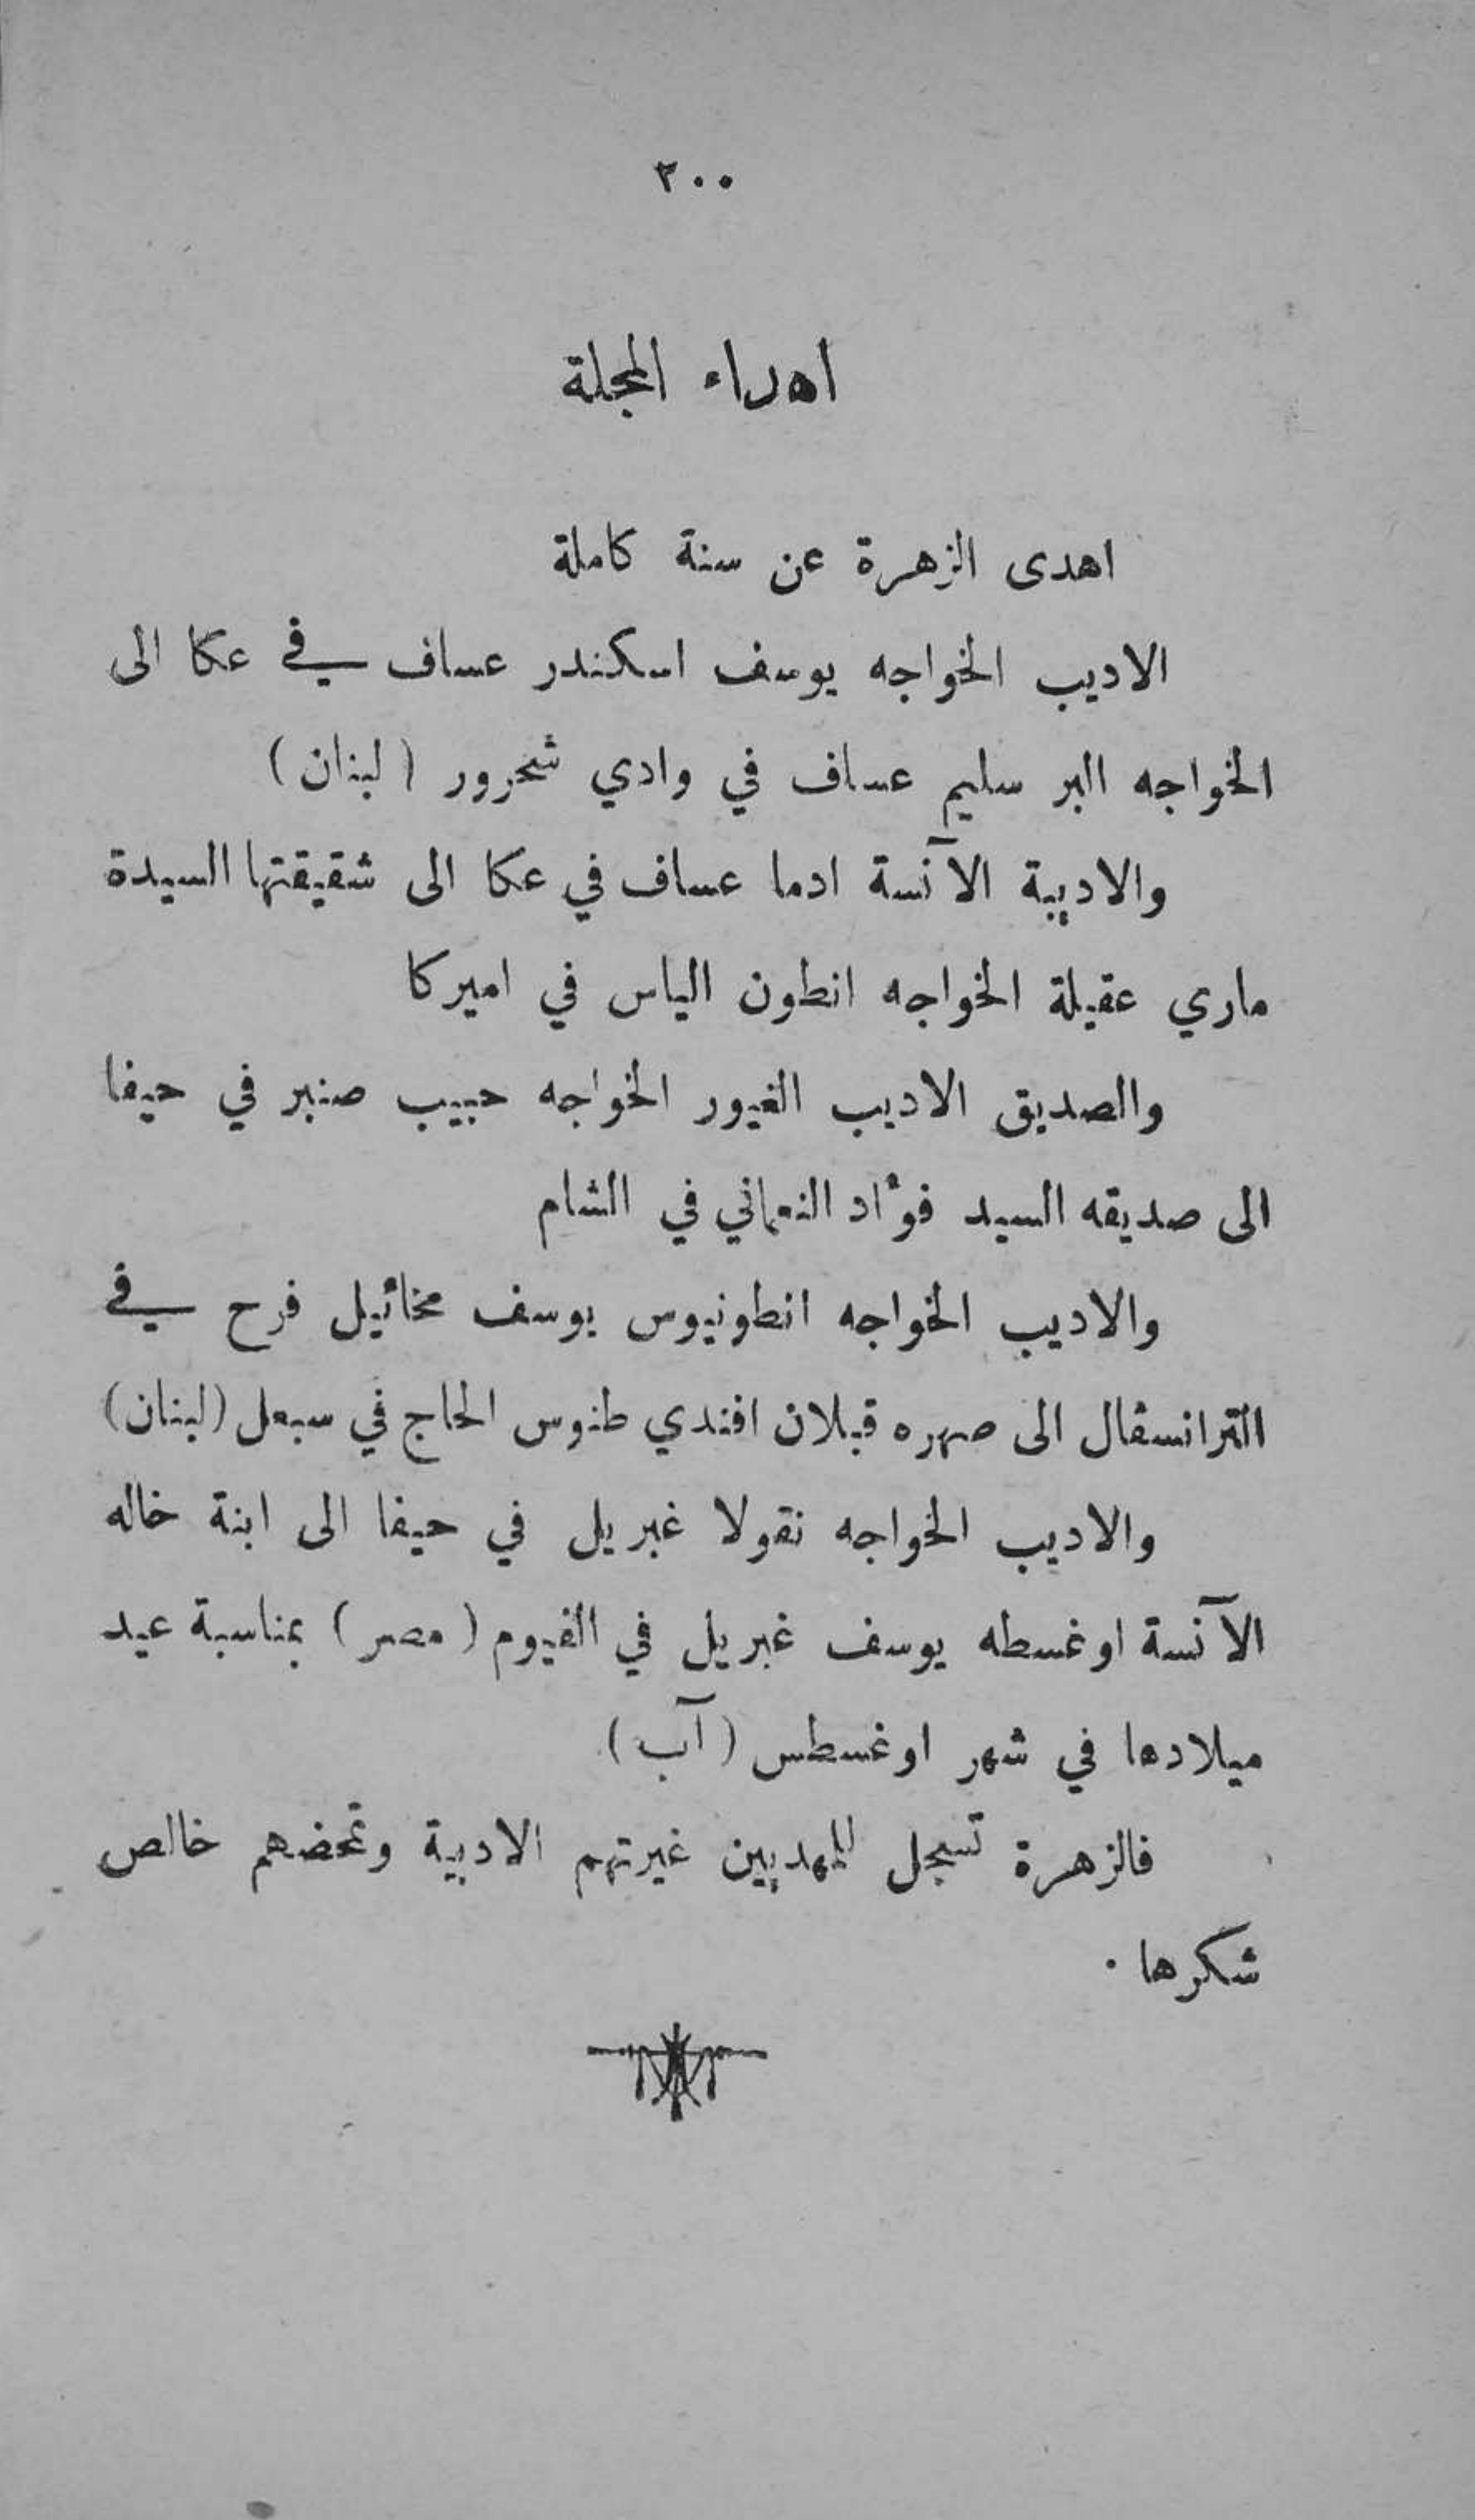 ٢٠٠
اهداء المجلة
اهدى الزهرة عن سنة كاملة
الاديب الخواجه يوسف اسكندر عساف في عكا الى
الخواجه البر سليم عساف في وادي شحرور ( لبنان )
والاديبة الآنسة ادما عساف في عكا الى شقيقتها السيدة
ماري عقيلة الخواجه انطون الياس في اميركا
والصديق الاديب الغيور الخواجه حبيب صنبر في حيفا
الى صديقه السيد فؤاد النعماني في الشام
والاديب الخواجه انطونيوس يوسف مخائيل فرح في
الترانسفال الى صهره قبلان افندي طنوس الحاج في سبعل (لبنان)
والاديب الخواجه نقولا غبريل في حيفا الى ابنة خاله
الآنسة اوغسطه يوسف غبريل في الفيوم ( مصر ) بمناسبة عيد
ميلادها في شهر اوغسطس ( آب )
فالزهرة تسجل للمهديين غيرتهم الادبية وتمحضهم خالص
شكرها ٠